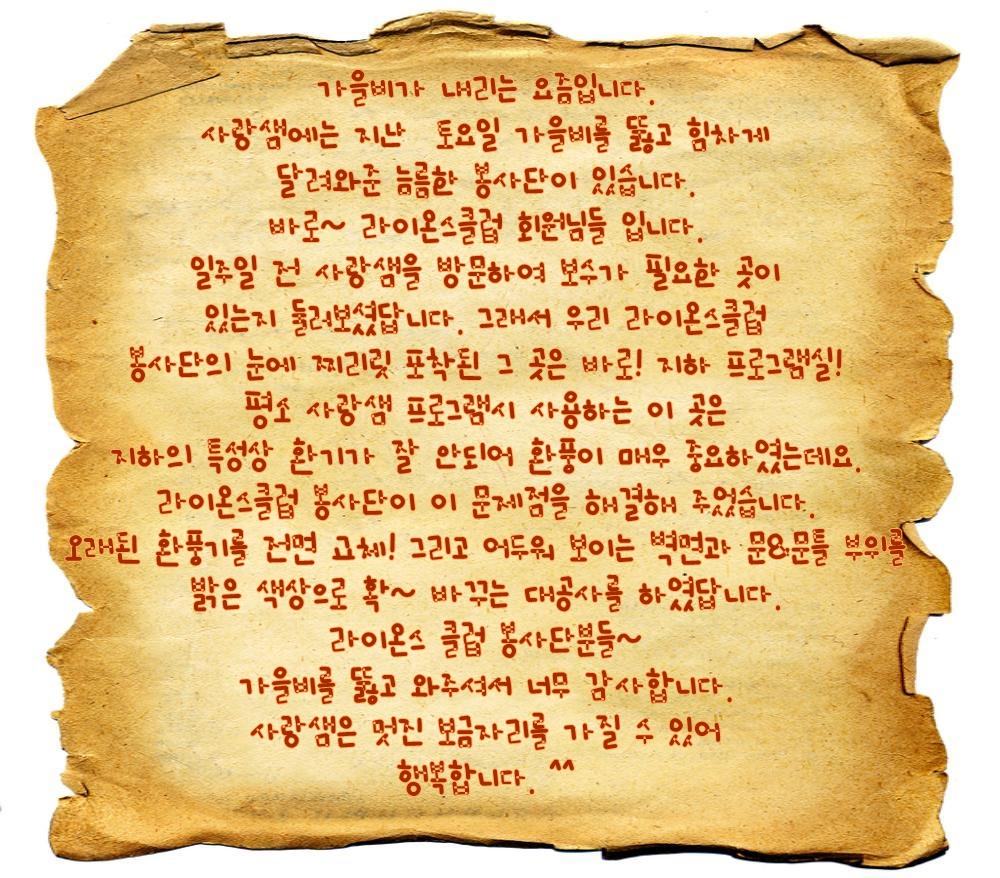 가을비가 내리는 요즘입니다.
사랑샘에는 지난 토요일 가을비를 뚫고 힘차게
달려와준 늠름한 봉사단이 있습니다.
바로~ 라이온스클럽 회원님들 입니다.
일주일 전 사랑샘을 방문하여 보수가 필요한 곳이
있는지 둘러보셨답니다. 그래서 우리 라이온스클럽
봉사단의 눈에 찌리릿 포착된 그 곳은 바로! 지하 프로그램실!
평소 사랑샘 프로그램시 사용하는 이 곳은
지하의 특성상 환기가 잘 안되어 환풍이 매우 중요하였는데요.
라이온스클럽 봉사단이 이 문제점을 해결해 주었습니다.
오래된 환풍기를 전면 교체! 그리고 어두워 보이는 벽면과 문&문틀 부위를
밝은 색상으로 확~ 바꾸는 대공사를 하였답니다.
라이온스 클럽 봉사단분들~
가을비를 뚫고 와주셔서 너무 감사합니다.
사랑샘은 멋진 보금자리를 가질 수 있어
행복합니다. ^^